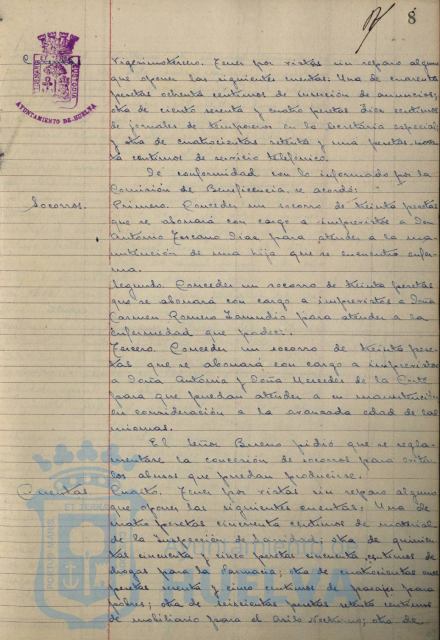 8
Cuentas
Vigesimotercero. Tener por vistas sin reparo alguno
que oponer las siguientes cuentas: Una de cuarenta
pesetas ochenta centimos de inserción de anuncios;
otra de ciento setenta y cuatro pesetas diez centimos
de jornales de temporeros en la Secretaria especial
y otra de cuatrocientas setenta y una pesetas noven-
ta centimos de servicio telefónico.
AYUNTAMIENTO DE HUELVA
De conformidad con lo informado por la
Comisión de Beneficencia, se acordó:
Socorros.
Primero. Conceder un socorro de treinta pesetas
que se abonará con cargo a imprevistos a Don
Antonio Toscano Diaz para atender a la ma-
nutención de una hija que se encuentra enfer-
ma.
Segundo. Conceder un socorro de treinta pesetas
que se abonará con cargo a imprevistos a Doña
Carmen Romero Zamudio para atender a la
enfermedad que padece.
Tercero. Conceder un socorro de treinta pese-
tas que se abonará con cargo a imprevistos
a Doña Antonia y Doña Mercedes de la Corte
para que puedan atender a su manutención
en consideración a la avanzada edad de las
mismas.
El Señor Bueno pidió que se regla-
mentase la concesión de socorros para evitar
los abusos que puedan producirse.
Cuentas
Cuarto. Tener por vistas sin reparo alguno
que oponer las siguientes cuentas: Una de
cuatro pesetas cincuenta centimos de material
de la Inspección de Sanidad; otra de quinien-
tas cincuenta y cinco pesetas cincuenta centimos de
drogas para la farmacia; otra de cuatrocientas once
pesetas veinte y cinco centimos de pasajes para
pobres; otra de seiscientas pesetas setenta centimos
de mobiliario para el Asilo Nocturno; otra de
HUELVA